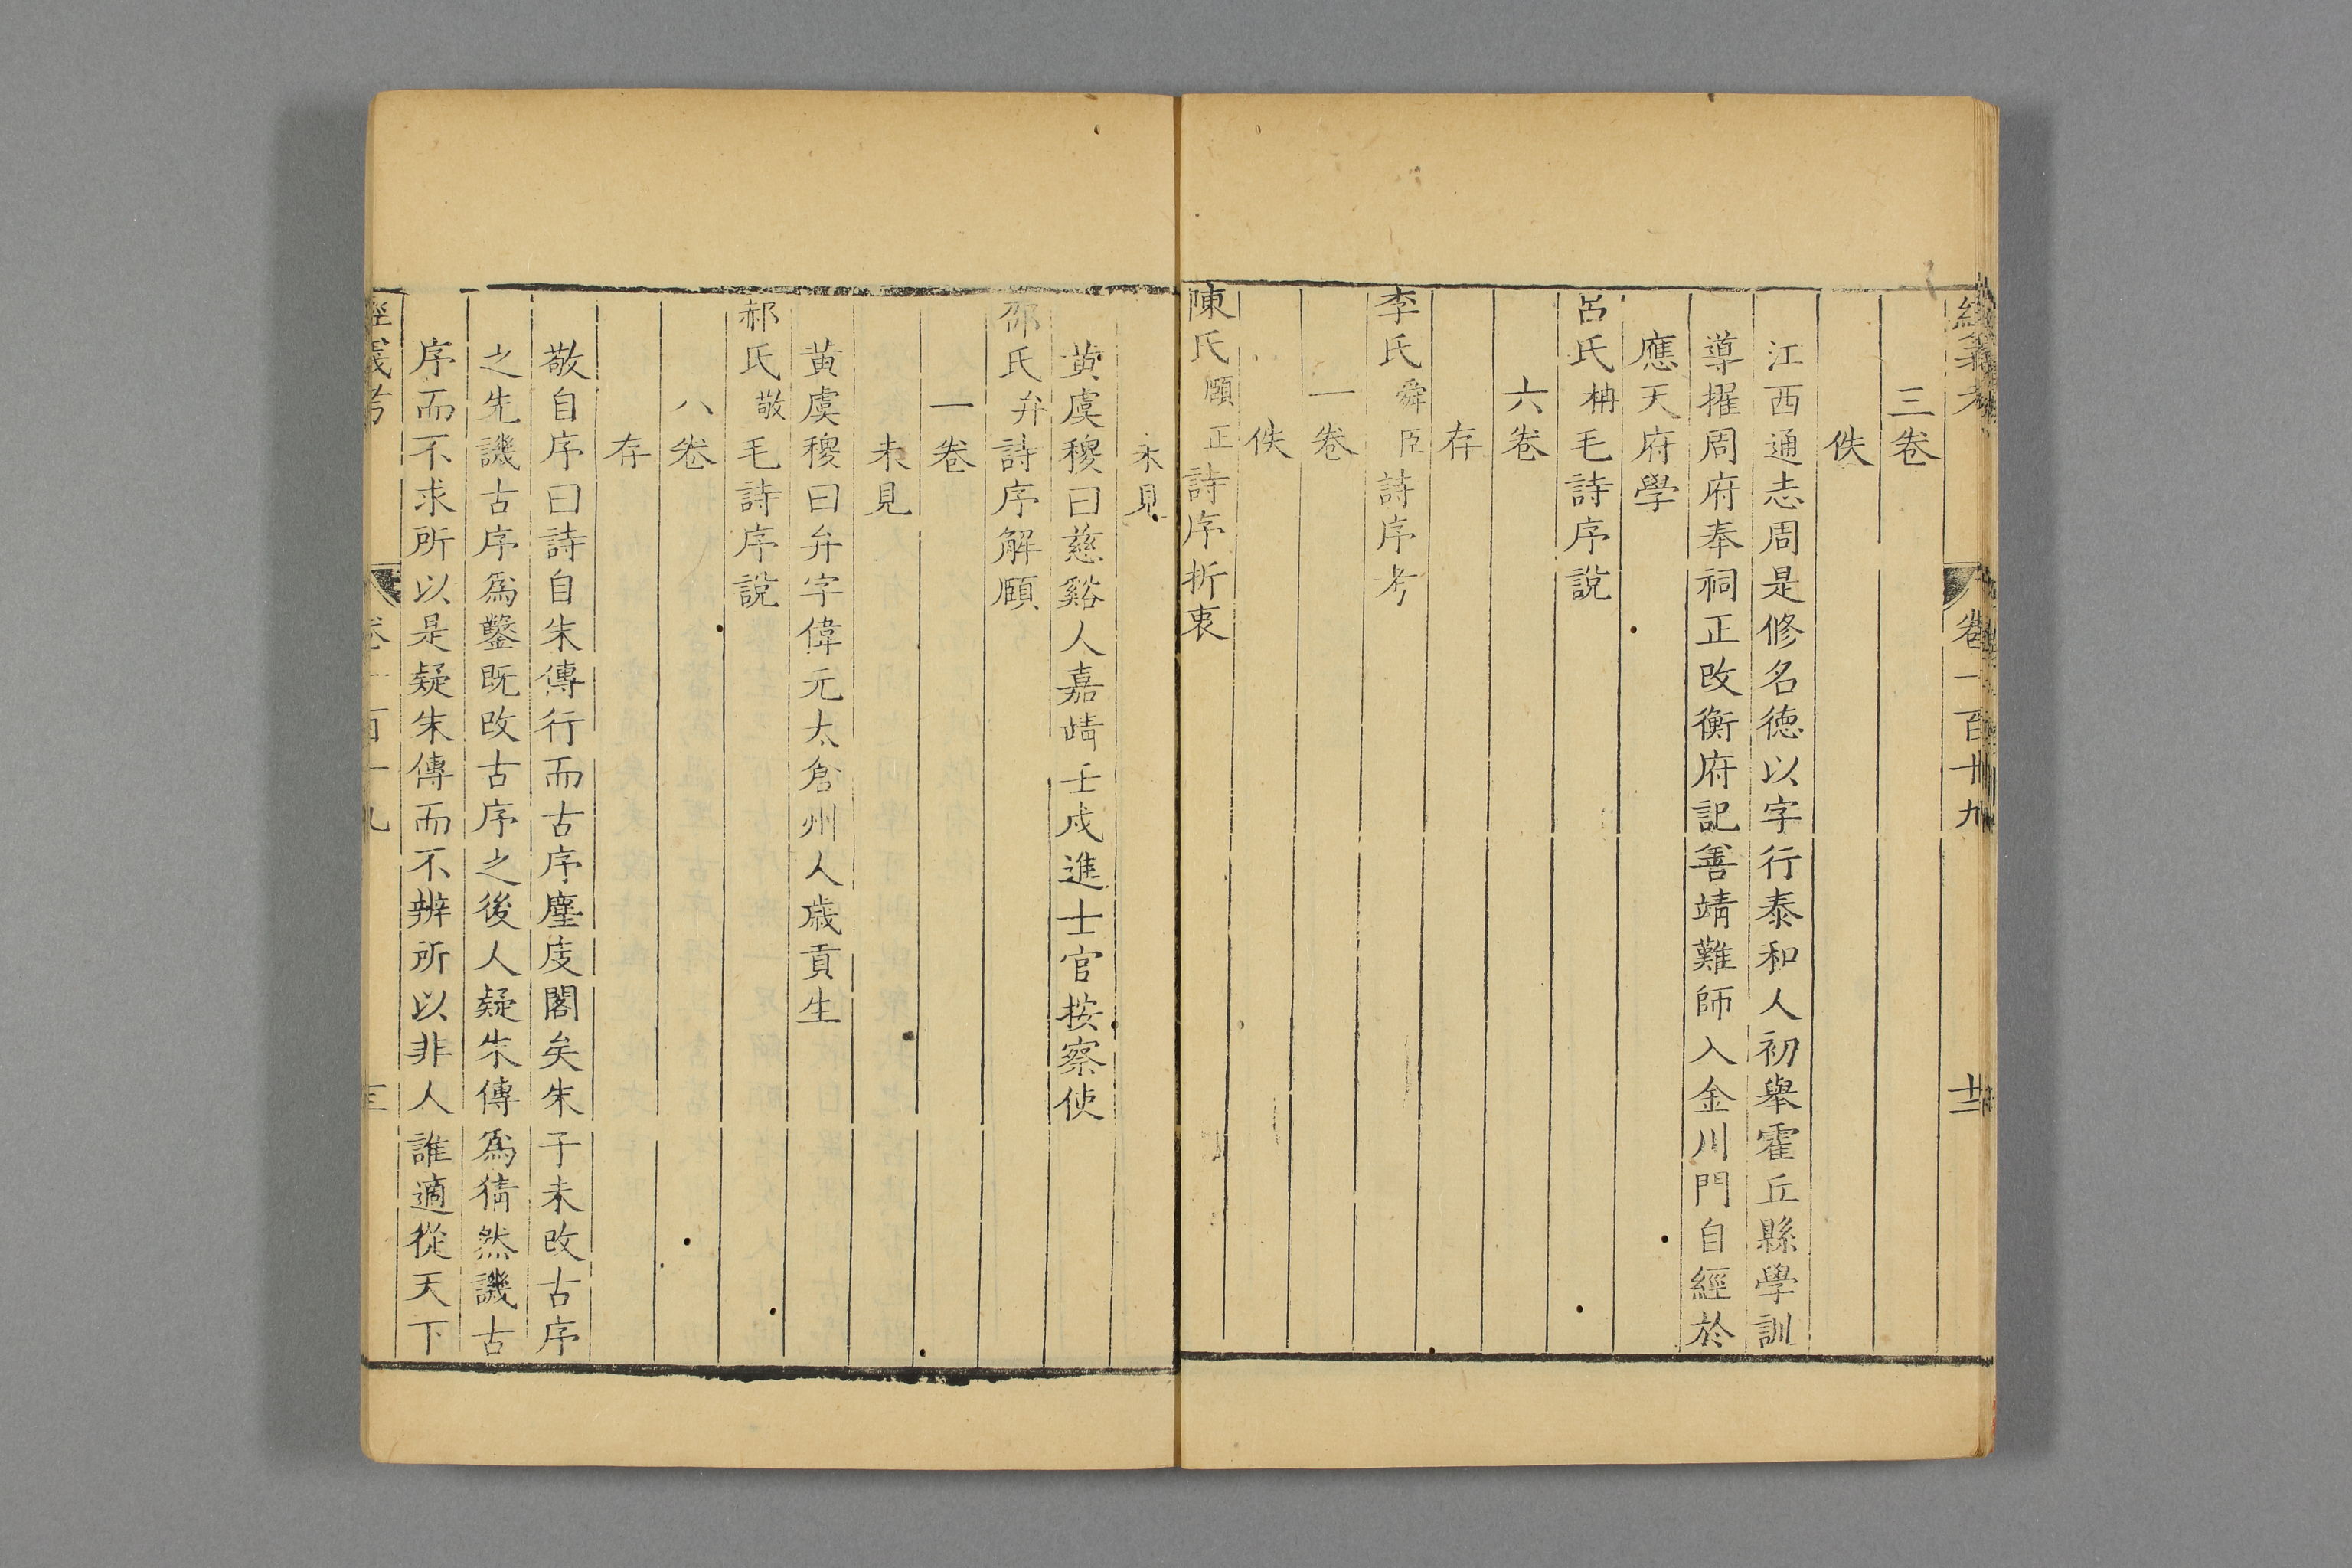 經義考 卷一百十九 十二
三卷
佚
江西通志周是修名德以字行泰和人初舉霍丘縣學訓
導擢周府奉祠正改衡府記善靖難師入金川門自經於
應天府學
呂氏柟毛詩序說
六卷
存
李氏舜臣詩序考
一卷
佚
陳氏願正詩序折衷
未見
黄虞稷曰慈谿人嘉靖壬戌進士官按察使
邵氏弁詩序解頤
一卷
未見
黄虞稷曰弁字偉元太倉州人歳貢生
郝氏敬毛詩序說
八卷
存
敬自序曰詩自朱傳行而古序塵庋閣矣朱于未改古序
之先譏古序爲鑿既改古序之後人疑朱傳爲猜然譏古
序而不求所以是疑朱傳而不辨所以非人誰適從天下
經義考 卷一百十九